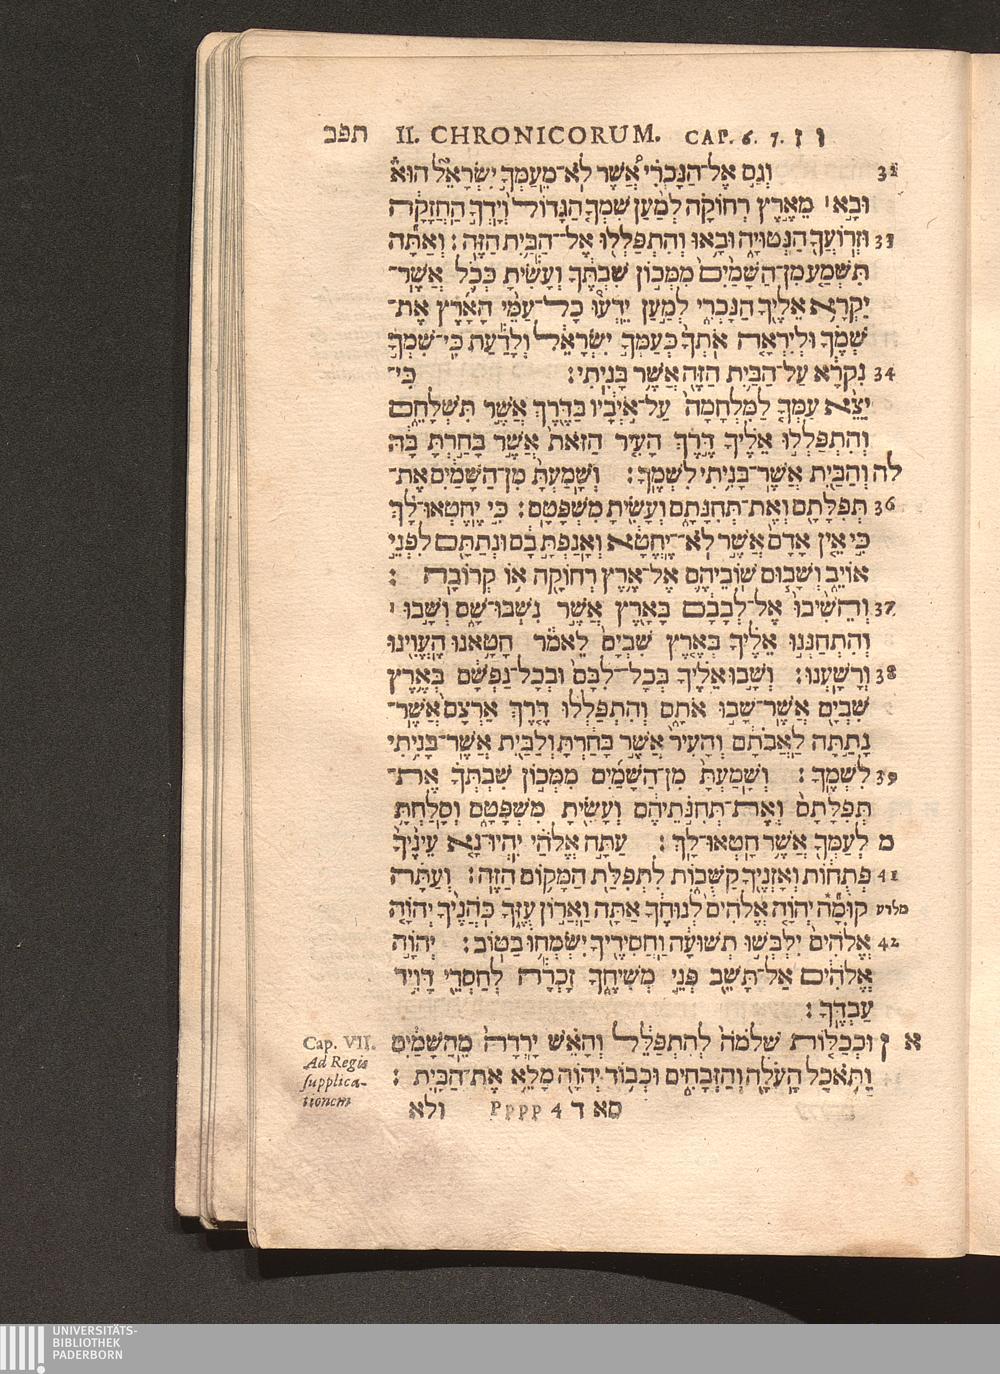 תפב II. CHRONICORUM. CAP. 6. 7. ו ז
32 וְגַם אֶל־הַנׇּכְרִי אֲשֶׁר לֹא־מֵעַמְּךָ יִשְׂרָאֵל הוּא
וּבָא ׀ מֵאֶרֶץ רְחוֹקָה לְמַעַן שִׁמְךָ הַגָּדוֹל וְיָדְךָ הַחֲזָקָה
33 וּזְרוֹעֲךָ הַנְּטוּיָה וּבָאוּ וְהִתְפַּלְלוּ אֶל־הַבַּיִת הַזֶּה׃ וְאַתָּה
תִּשְׁמַע מִן־הַשָּׁמַיִם מִמְּכוֹן שִׁבְתֶּךָ וְעָשִׂיתָ כְּכֹל אֲשֶׁר־
יִקְרָא אֵלֶיךָ הַנָּכְרִי לְמַעַן יֵדְעוּ כָל־עַמֵּי הָאָרֶץ אֶת־
שְׁמֶךָ וּלְיִרְאָה אֹתְךָ כְּעַמְּךָ יִשְׂרָאֵל וְלָדַעַת כִּי־שִׁמְךָ
34 נִקְרָא עַל־הַבַּיִת הַזֶּה אֲשֶׁר בָּנִיתִי׃ כִּי־
יֵצֵא עַמְּךָ לַמִּלְחָמָה עַל־אֹיְבָיו בַּדֶּרֶךְ אֲשֶׁר תִּשְׁלָחֵם
וְהִתְפַּלְלוּ אֵלֶיךָ דֶּרֶךְ הָעִיר הַזֹּאת אֲשֶׁר בָּחַרְתָּ בָּהּ
לה וְהַבַּיִת אֲשֶׁר־בָּנִיתִי לִשְׁמֶךָ׃ וְשָׁמַעְתָּ מִן־הַשָּׁמַיִם אֶת־
36 תְּפִלָּתָם וְאֶת־תְּחִנָּתָם וְעָשִׂיתָ מִשְׁפָּטָם׃ כִּי יֶחֶטְאוּ־לָךְ
כִּי אֵין אָדָם אֲשֶׁר לֹא־יֶחֱטָא וְאָנַפְתָּ בָם וּנְתַתָּם לִפְנֵי
אוֹיֵב וְשָׁבוּם שׁוֹבֵיהֶם אֶל־אֶרֶץ רְחוֹקָה אוֹ קְרוֹבָה׃
37 וְהֵשִׁיבוּ אֶל־לְבָבָם בָּאָרֶץ אֲשֶׁר נִשְׁבּוּ־שָׁם וְשָׁבוּ ׀
וְהִתְחַנְּנוּ אֵלֶיךָ בְּאֶרֶץ שִׁבְיָם לֵאמֹר חָטָאנוּ הֶעֱוִינוּ
38 וְרָשָׁעְנוּ׃ וְשָׁבוּ אֵלֶיךָ בְּכָל־לִבָּם וּבְכָל־נַפְשָׁם בְּאֶרֶץ
שִׁבְיָם אֲשֶׁר־שָׁבוּ אֹתָם וְהִתְפַּלְלוּ דֶּרֶךְ אַרְצָם אֲשֶׁר־
נָתַתָּה לַאֲבֹתָם וְהָעִיר אֲשֶׁר בָּחַרְתָּ וְלַבַּיִת אֲשֶׁר־בָּנִיתִי
39 לִשְׁמֶךָ׃ וְשָׁמַעְתָּ מִן־הַשָּׁמַיִם מִמְּכוֹן שִׁבְתְּךָ אֶת־
תְּפִלָּתָם וְאֶת־תְּחִנֹּתֵיהֶם וְעָשִׂיתָ מִשְׁפָּטָם וְסָלַחְתָּ
מ לְעַמְּךָ אֲשֶׁר חָטְאוּ־לָךְ׃ עַתָּה אֱלֹהַי יִהְיוּ־נָא עֵינֶיךָ
41 פְּתֻחוֹת וְאָזְנֶיךָ קַשֻּׁבוֹת לִתְפִלַּת הַמָּקוֹם הַזֶּה׃ וְעַתָּה
קוּמָה יְהוָה אֱלֹהִים לְנוּחֶךָ אַתָּה וַאֲרוֹן עֻזֶּךָ כֹּהֲנֶיךָ יְהוָה
42 אֱלֹהִים יִלְבְּשׁוּ תְשׁוּעָה וַחֲסִידֶיךָ יִשְׂמְחוּ בַטּוֹב׃ יְהוָה
אֱלֹהִים אַל־תָּשֵׁב פְּנֵי מְשִׁיחֶךָ זָכְרָה לְחַסְדֵי דָּוִיד
עַבְדֶּךָ׃
א ז וּכְכַלּוֹת שְׁלֹמֹה לְהִתְפַּלֵּל וְהָאֵשׁ יָרְדָה מֵהַשָּׁמַיִם
Cap. VII.
Ad Regis
supplica-
tionem
וַתֹּאכַל הָעֹלָה וְהַזְּבָחִים וּכְבוֹד יְהוָה מָלֵא אֶת־הַבָּיִת׃
סא ד Pppp 4 ולא
UNIVERSITÄTS-
BIBLIOTHEK
PADERBORN